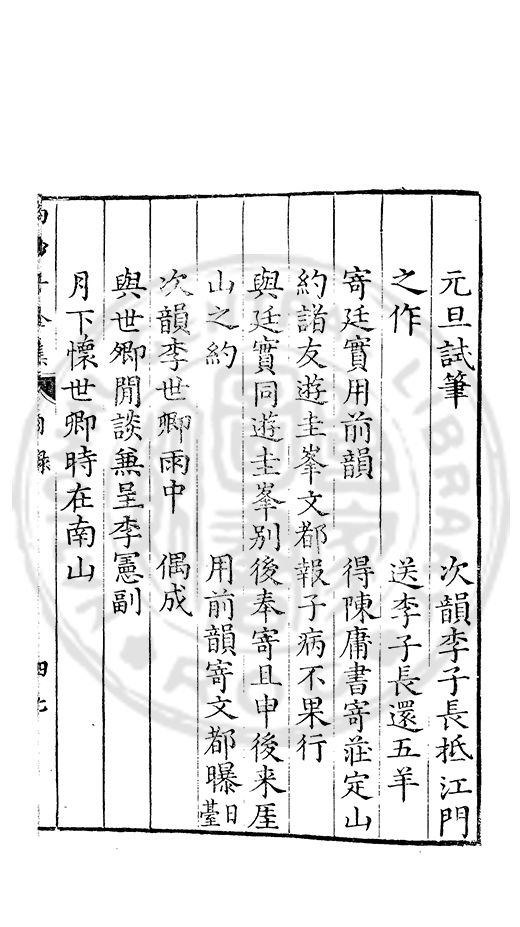 元旦試筆　次韻李子長抵江門
之作　送李子長還五羊
寄廷實用前韻　得陳庸書寄莊定山
約諸友遊圭峯文都報子病不果行
與廷實同遊圭峯別後奉寄且申後来厓
山之約　用前韻寄文都曝日臺
次韻李世卿雨中　偶成
與世卿閒談兼呈李憲副
月下懷世卿時在南山